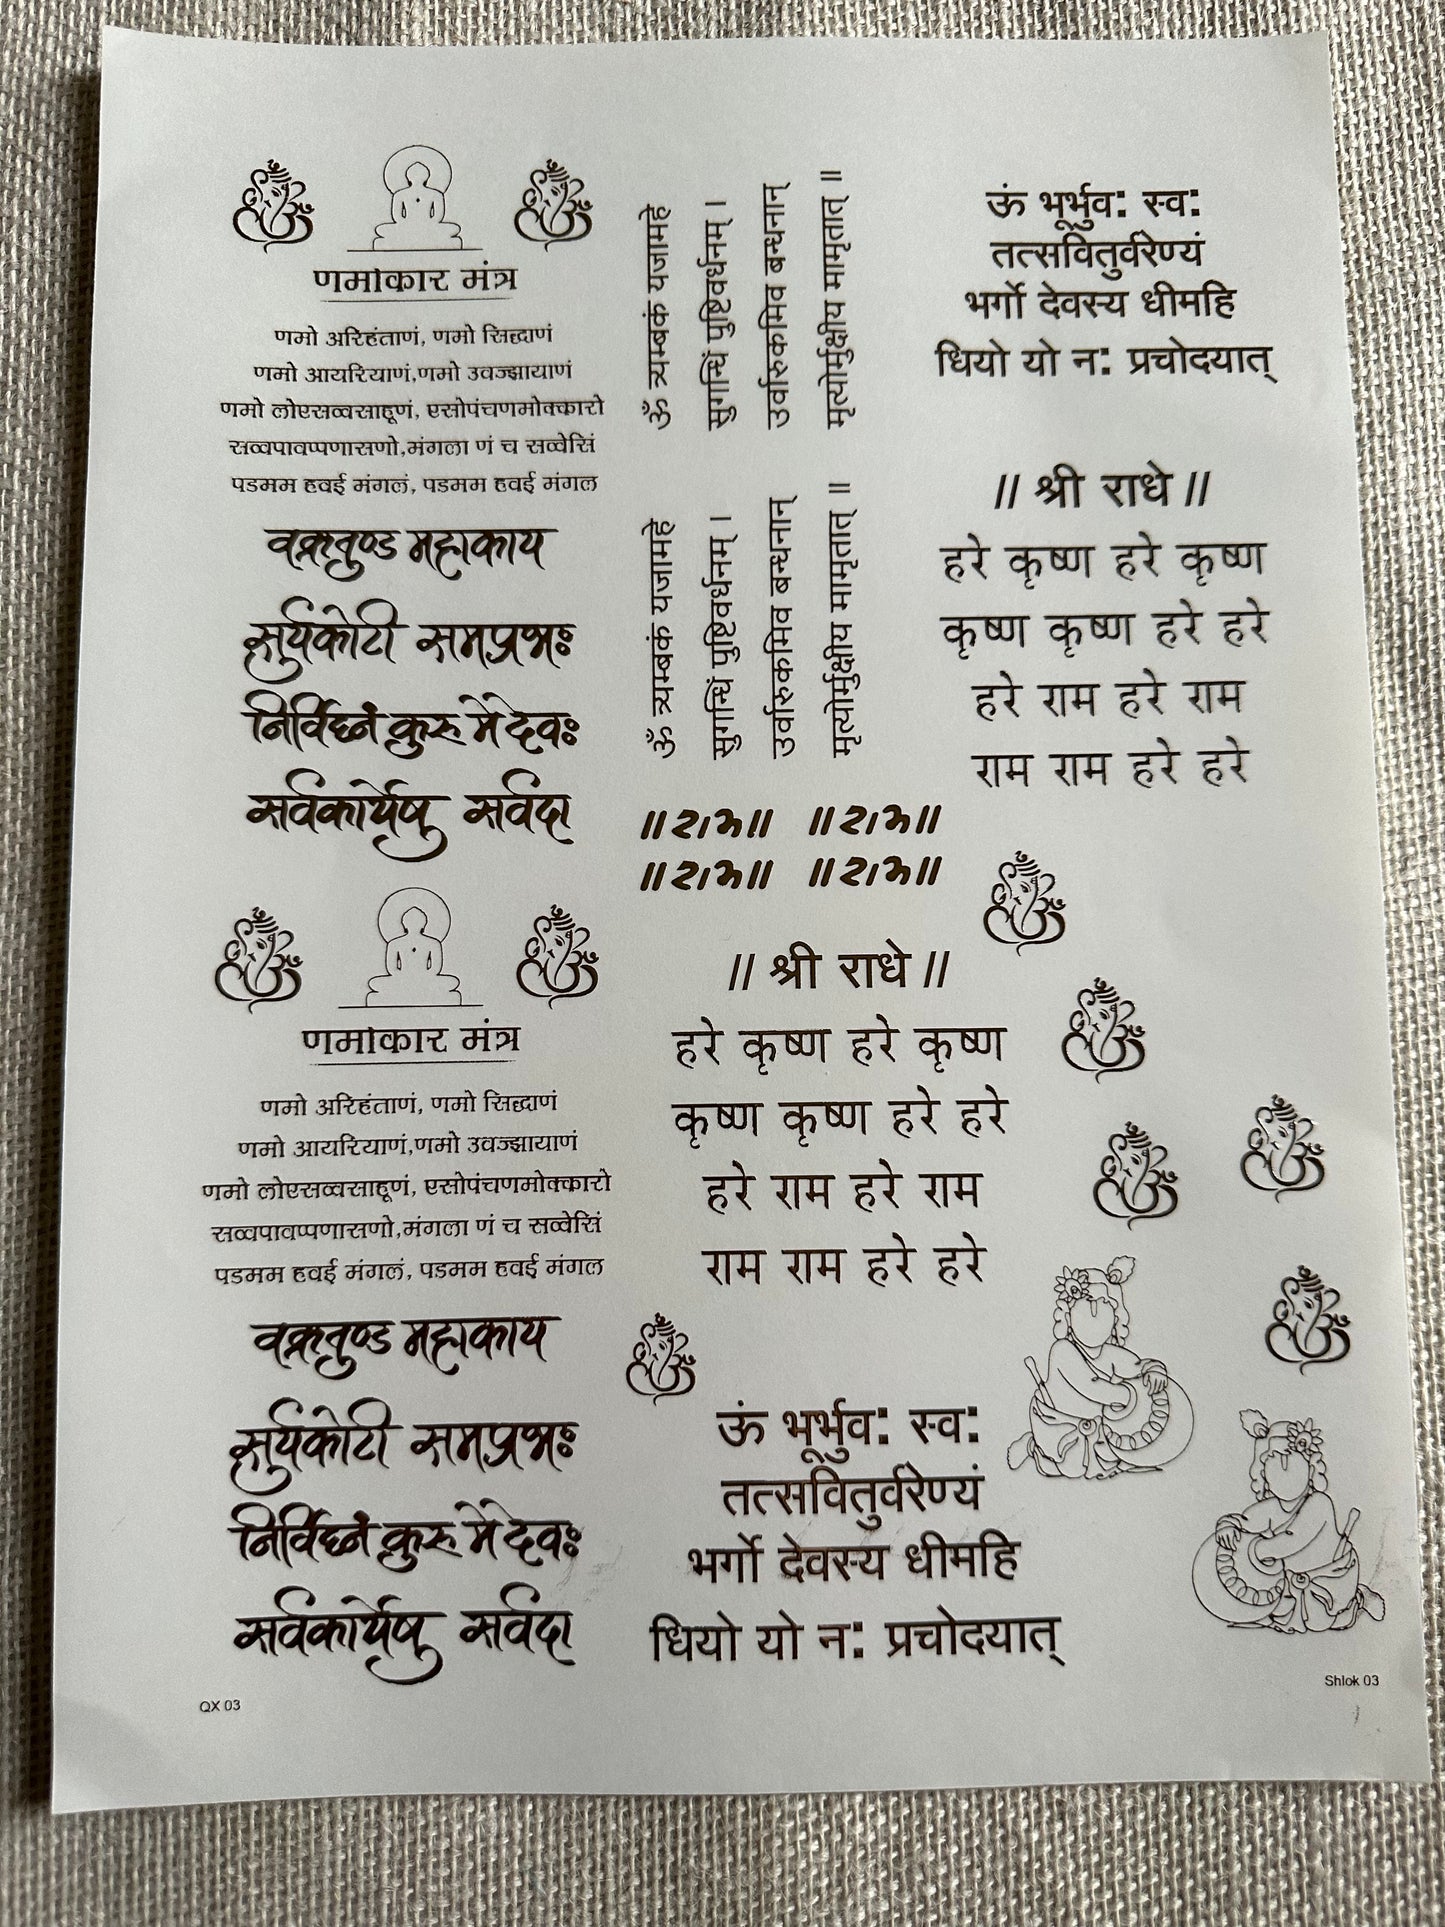 णमोकार मंत्र
णमो अरिहंताणं, णमो सिद्धाणं
णमो आयरियाणं,णमो उवज्झायाणं
णमो लोएसव्वसाहूणं, एसोपंचणमोक्कारो
सव्वपावप्पणासणो,मंगला णं च सव्वेसिं
पडमम हवई मंगलं, पडमम हवई मंगल
वक्रतुण्ड महाकाय
सुर्यकोटी समप्रभः
निर्विघ्नं कुरु मे देवः
सर्वकार्येषु सर्वदा
णमोकार मंत्र
णमो अरिहंताणं, णमो सिद्धाणं
णमो आयरियाणं,णमो उवज्झायाणं
णमो लोएसव्वसाहूणं, एसोपंचणमोक्कारो
सव्वपावप्पणासणो,मंगला णं च सव्वेसिं
पडमम हवई मंगलं, पडमम हवई मंगल
वक्रतुण्ड महाकाय
सुर्यकोटी समप्रभः
निर्विघ्नं कुरु मे देवः
सर्वकार्येषु सर्वदा
QX 03
ॐ त्र्यम्बकं यजामहे
सुगन्धिं पुष्टिवर्धनम् ।
उर्वारुकमिव बन्धनान्
मृत्योर्मुक्षीय मामृतात् ॥
ॐ त्र्यम्बकं यजामहे
सुगन्धिं पुष्टिवर्धनम् ।
उर्वारुकमिव बन्धनान्
मृत्योर्मुक्षीय मामृतात् ॥
॥राम॥ ॥राम॥
॥राम॥ ॥राम॥
// श्री राधे //
हरे कृष्ण हरे कृष्ण
कृष्ण कृष्ण हरे हरे
हरे राम हरे राम
राम राम हरे हरे
ऊं भूर्भुव: स्व:
तत्सवितुर्वरेण्यं
भर्गो देवस्य धीमहि
धियो यो न: प्रचोदयात्
ऊं भूर्भुव: स्व:
तत्सवितुर्वरेण्यं
भर्गो देवस्य धीमहि
धियो यो न: प्रचोदयात्
// श्री राधे //
हरे कृष्ण हरे कृष्ण
कृष्ण कृष्ण हरे हरे
हरे राम हरे राम
राम राम हरे हरे
Shlok 03